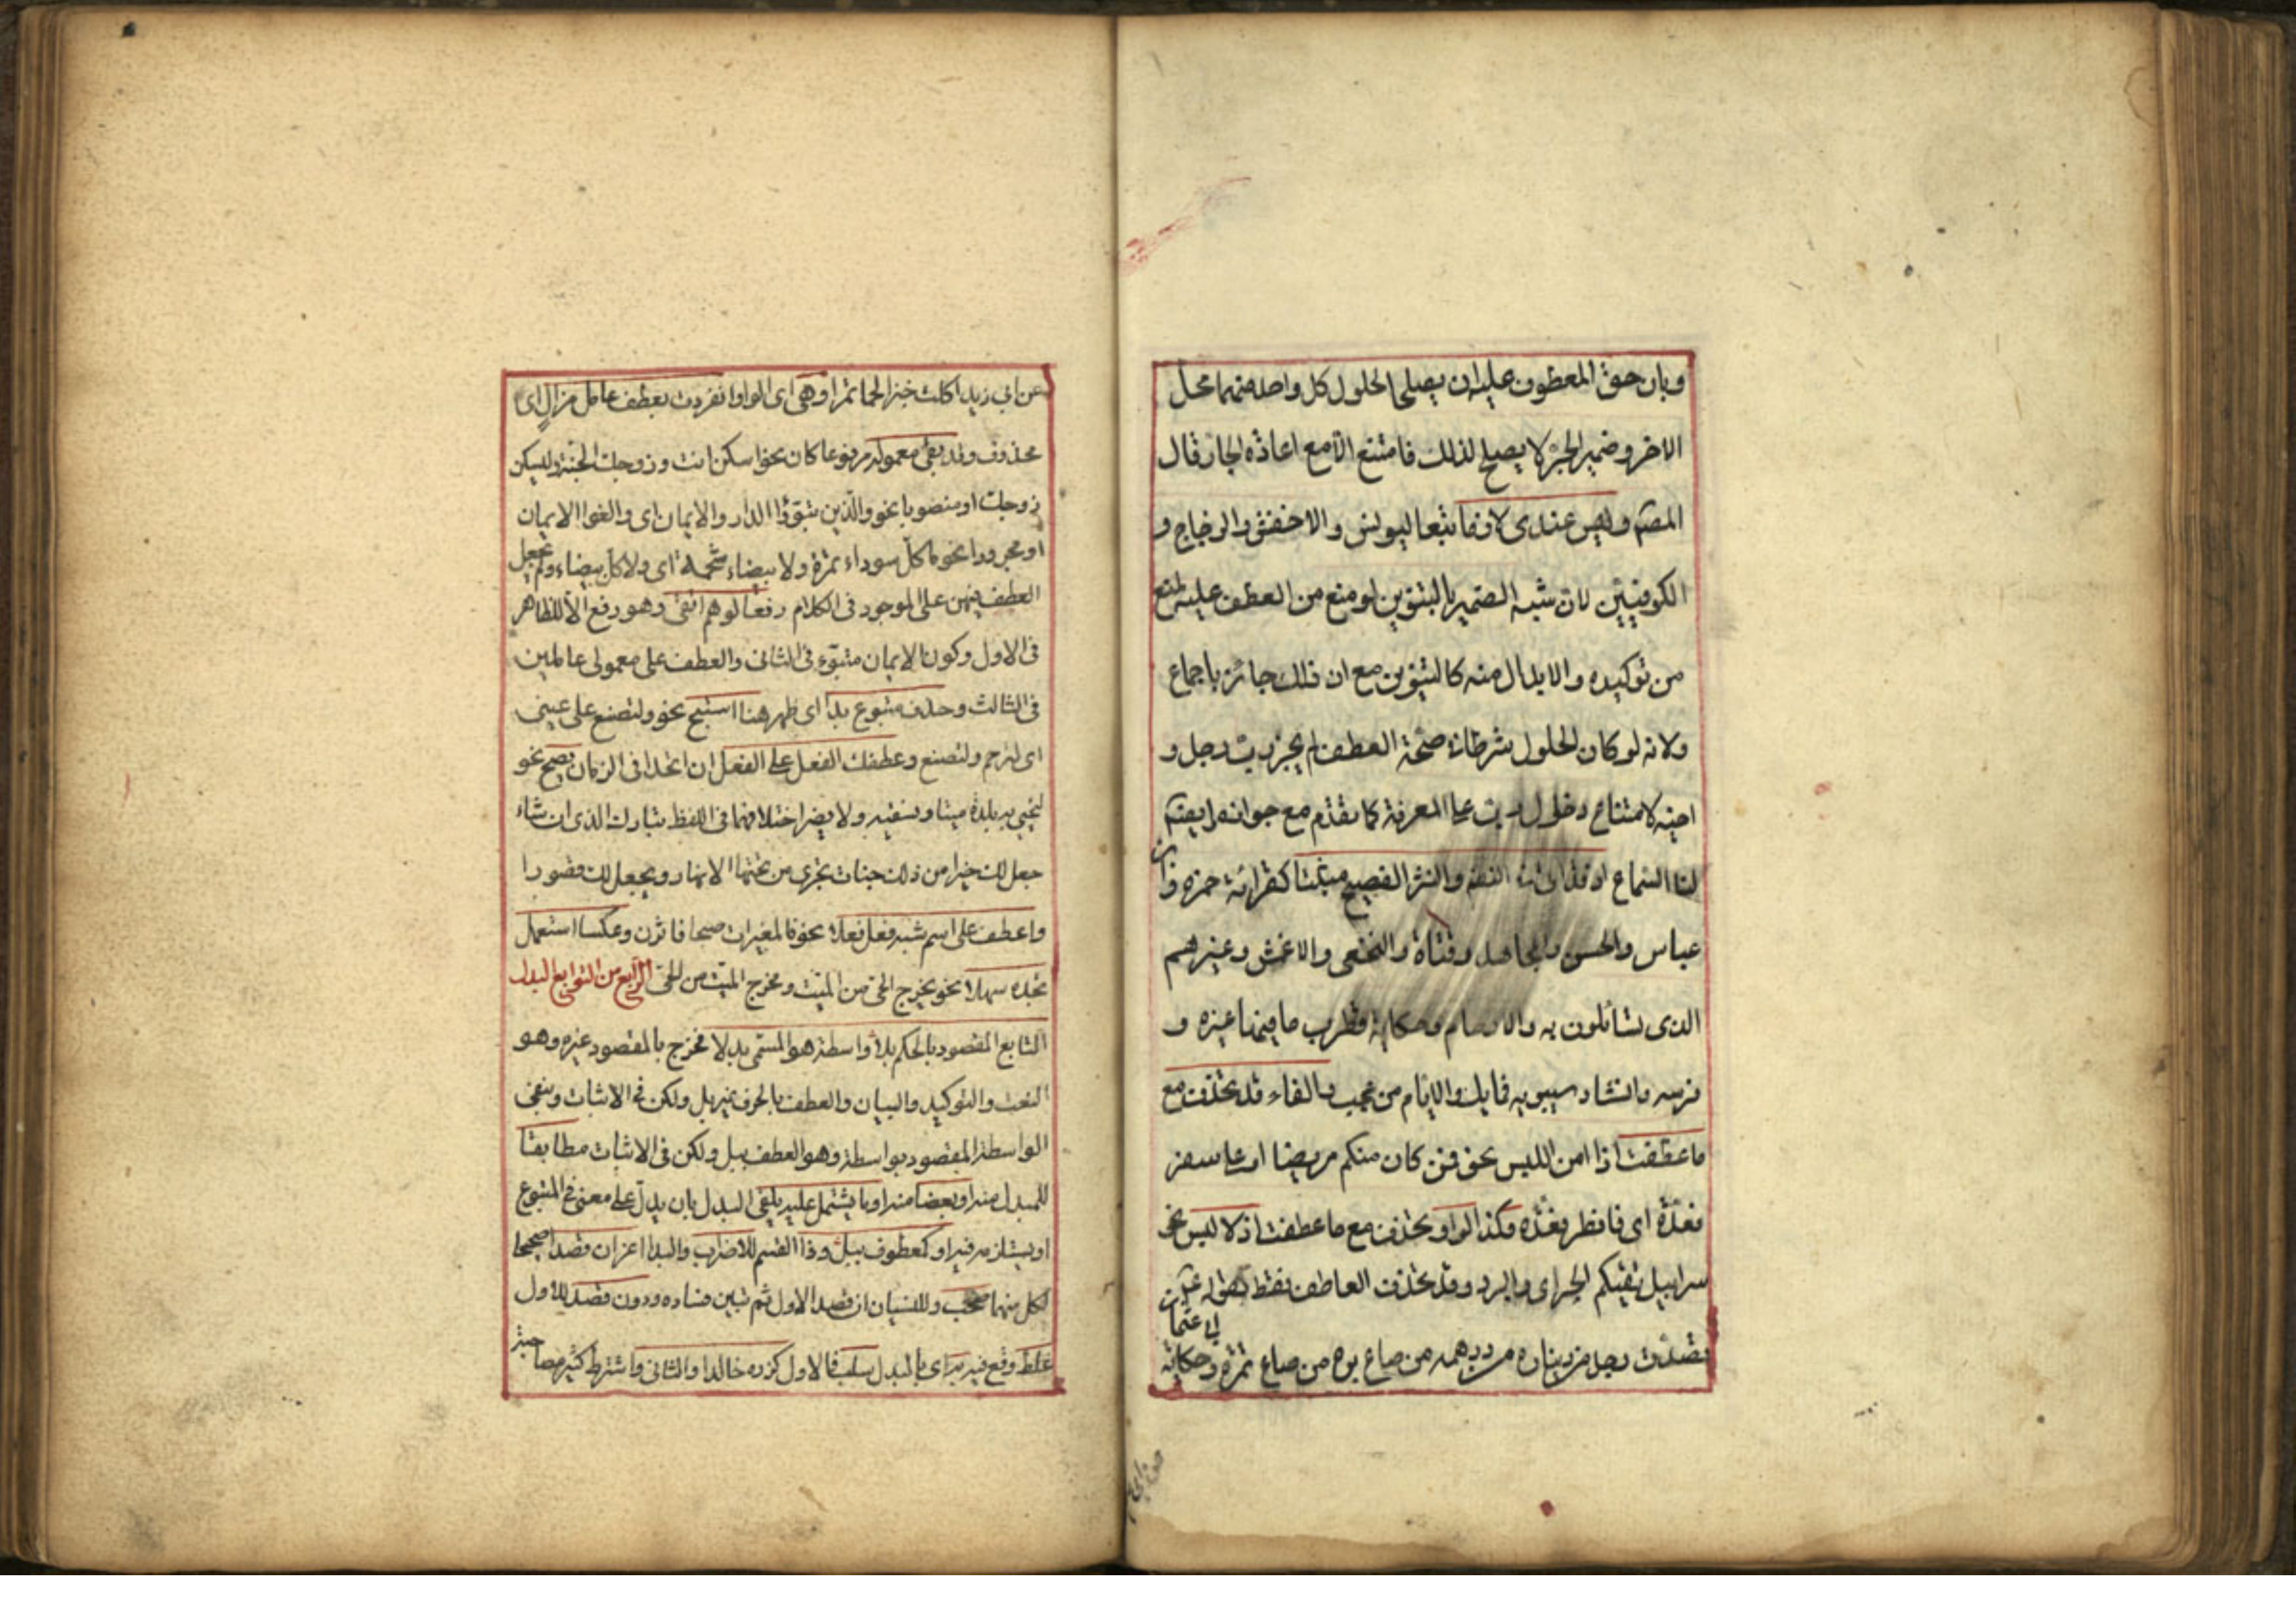 وبان حق المعطوف عليه ان يصلح الحلول كل واحد منهما محل
الاخر وضمير الجر لا يصلح لذلك فامتنع الا مع اعادة الجار قال
المصنف وليس عندى لازما تبعا ليونس والاخفش والزجاج و
الكوفيين لان شبه الضمير بالتنوين لو منع من العطف عليه لمنع
من توكيده والابدال منه كالتنوين مع ان ذلك جائز باجماع
ولانه لو كان الحلول شرطا فى صحة العطف لم يجز رب رجل و
اخيه لامتناع دخول رب على المعرفة كما تقدم مع جوازه وايضا
لنا السماع اذ قد اتى فى النظم والنثر الفصيح مثبتا كقرائة حمزة وابن
عباس والحسن والمجاهد وقتادة والنخعى والاعمش وغيرهم
الذى تسائلون به والارحام وحكاية قطرب ما فيها غيره و
فرسه وانشاد سيبويه فما بك والايام من عجب والفاء قد تحذف مع
ما عطفت اذا امن اللبس نحو فمن كان منكم مريضا او على سفر
فعدة اى فافطر فعدة وكذا الواو تحذف مع ما عطفت اذ لا لبس نحو
سرابيل تقيكم الحر اى والبرد وقد تحذف العاطف فقط كقوله
تصدق رجل من ديناره من درهمه من صاع بره من صاع تمره وحكاية
ابى عثمان
عن ابى زيد اكلت خبزا لحما تمرا وهى اى الواو انفردت بعطف عامل مزال اى
محذوف وقد بقى معموله مرفوعا كان نحو اسكن انت وزوجك الجنة وليسكن
زوجك او منصوبا نحو والذين تبوؤا الدار والايمان اى والفوا الايمان
او مجرورا نحو ما كل سوداء تمرة ولا بيضاء شحمة اى ولا كل بيضاء ولم يجعل
العطف فيهن على الموجود فى الكلام دفعا لوهم اتقى وهو رفع الامر للظاهر
فى الاول وكون الايمان متبوء فى الثانى والعطف على معمولى عاملين
فى الثالث وحذف متبوع بدا اى ظهر هنا استبح نحو ولتصنع على عينى
اى لترحم ولتصنع وعطفك الفعل على الفعل ان اتحدا فى الزمان يصح نحو
لنحيى به بلدة ميتا ونسقيه ولا يضر اختلافهما فى اللفظ تبارك الذى ان شاء
جعل لك خيرا من ذلك جنات تجرى من تحتها الانهار ويجعل لك قصورا
واعطف على اسم شبه فعل فعلا نحو فالمغيرات صبحا فاثرن وعكسا استعمل
تجده سهلا نحو يخرج الحى من الميت ومخرج الميت من الحى الرابع من التوابع البدل
التابع المقصود بالحكم بلا واسطة هو المسمى بدلا فخرج بالمقصود غيره وهو
النعت والتوكيد والبيان والعطف بالحرف غير بل ولكن فى الاثبات وبنفى
الواسطة المقصود بواسطة وهو العطف ببل ولكن فى الاثبات مطابقا
للمبدل منه او بعضا منه او ما يشتمل عليه يلفى البدل بان يدل على معنى فى المتبوع
او يستلزمه فيه او كمعطوف ببل وذا القسم للاضراب والبدا اعز ان قصدا صحيحا
لكل منهما صحب وللنسيان ان قصد الاول ثم تبين فساده ودون قصد للاول
غلط وقع فيه به اى بالبدل سلب فالاول كزره خالدا والثانى واشترط كثير